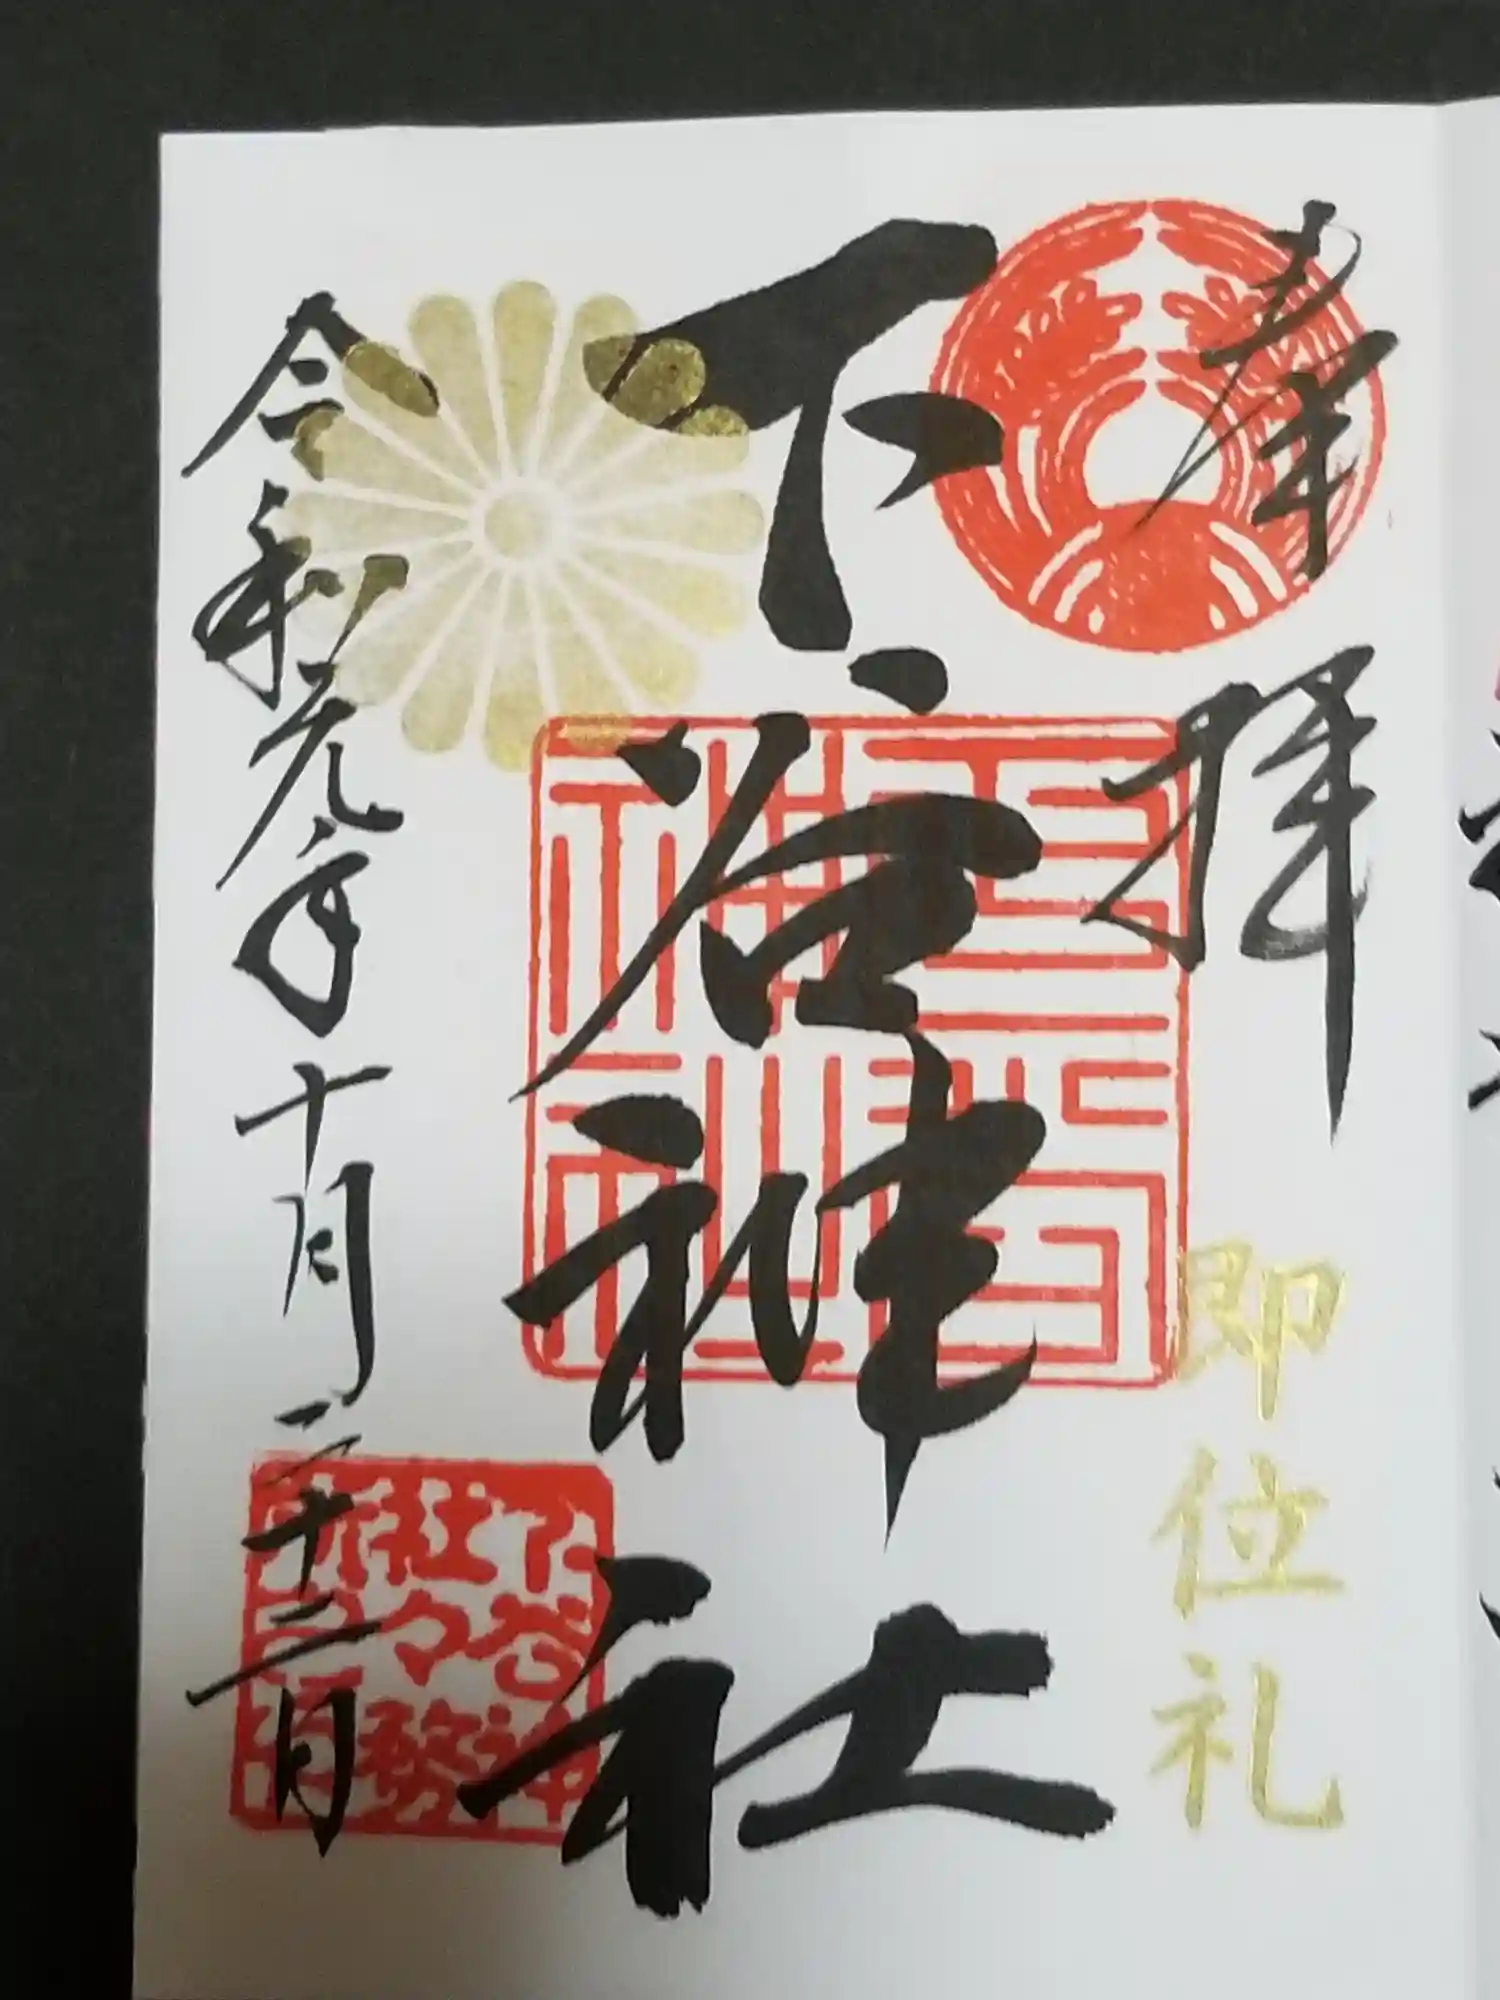 奉拝
即位礼
下谷神社
下谷神社々務所之印
令和元年十月二十二日